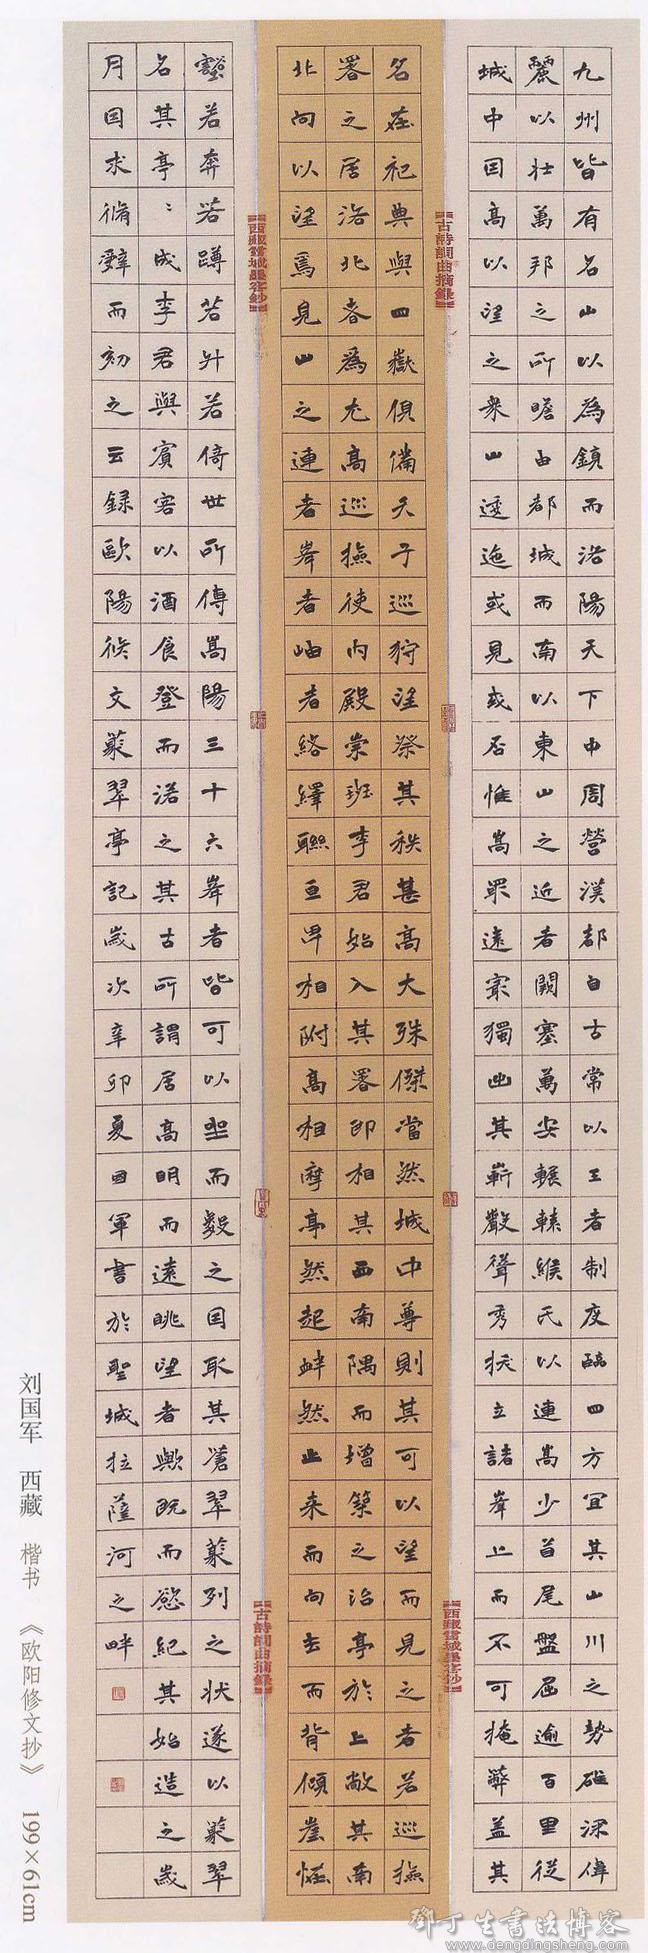 九州皆有名山以為鎮而洛陽天下中周營漢都自古常以王者制度臨四方宜其山川之勢雄深偉
麗以壯萬邦之所瞻由都城而南以東山之近者闕塞萬安轘轅緱氏以連嵩少首尾盤屈逾百里從
城中因高以望之衆山逶迤或見或否惟嵩最遠最獨出其嶄巖聳秀拔立諸峯上而不可掩蔽蓋其
古詩詞曲摘錄
西藏雪域墨客鈔
名在祀典與四嶽俱備天子巡狩望祭其秩甚高大殊傑當然城中尊則其可以望而見之者若巡撿
署之居洛北者為尤高巡撿使內殿崇班李君始入其署即相其西南隅而增築之治亭於上敞其南
北向以望焉見山之連者峯者岫者絡繹聯亘卑相附高相摩亭然起崪然止来而向去而背傾崖怪
西藏雪域墨客鈔
古詩詞曲摘錄
豁若奔若蹲若升若倚世所傳嵩陽三十六峯者皆可以坐而數之因取其蒼翠叢列之狀遂以叢翠
名其亭〻成李君與賓客以酒食登而落之其古所謂居高明而遠眺望者歟既而欲紀其始造之歲
月因求脩辭而刻之云録歐陽脩文叢翠亭記歲次辛卯夏國軍書於聖城拉薩河之畔
刘国军 西藏 楷书 《欧阳修文抄》 199×61cm
鄧丁生書法博客
www.dengdingsheng.com